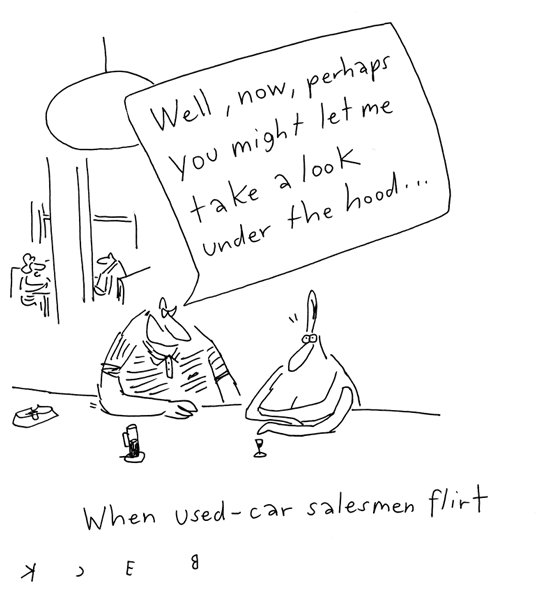 Well, now, perhaps
you might let me
take a look
under the hood...
When used-car salesmen flirt
B E C K